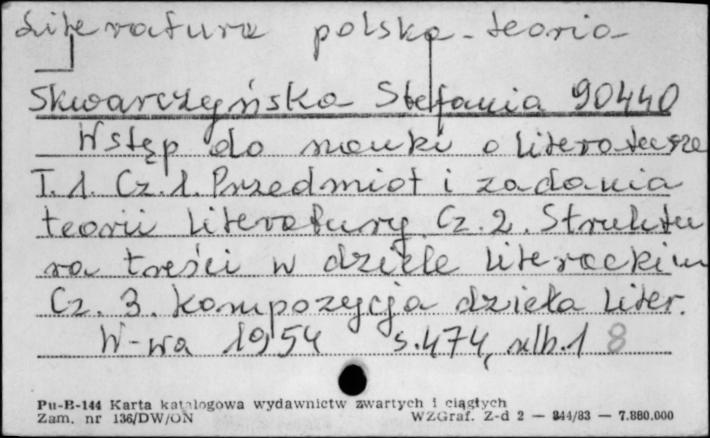 Literatura polska - teoria
Skwarczyńska Stefania 90440
Wstęp do nauki o literaturze
T. 1. Cz. 1. Przedmiot i zadania
teorii literatury. Cz. 2. Struktu
ra treści w dziele literackim
Cz. 3. Kompozycja dzieła liter.
W-wa 1954 s. 474, nlb. 1 8
Pu-B-144 Karta katalogowa wydawnictw zwartych i ciągłych
Zam. nr 136/DW/ON WZGraf. Z-d 2 — 344/83 — 7.880.000